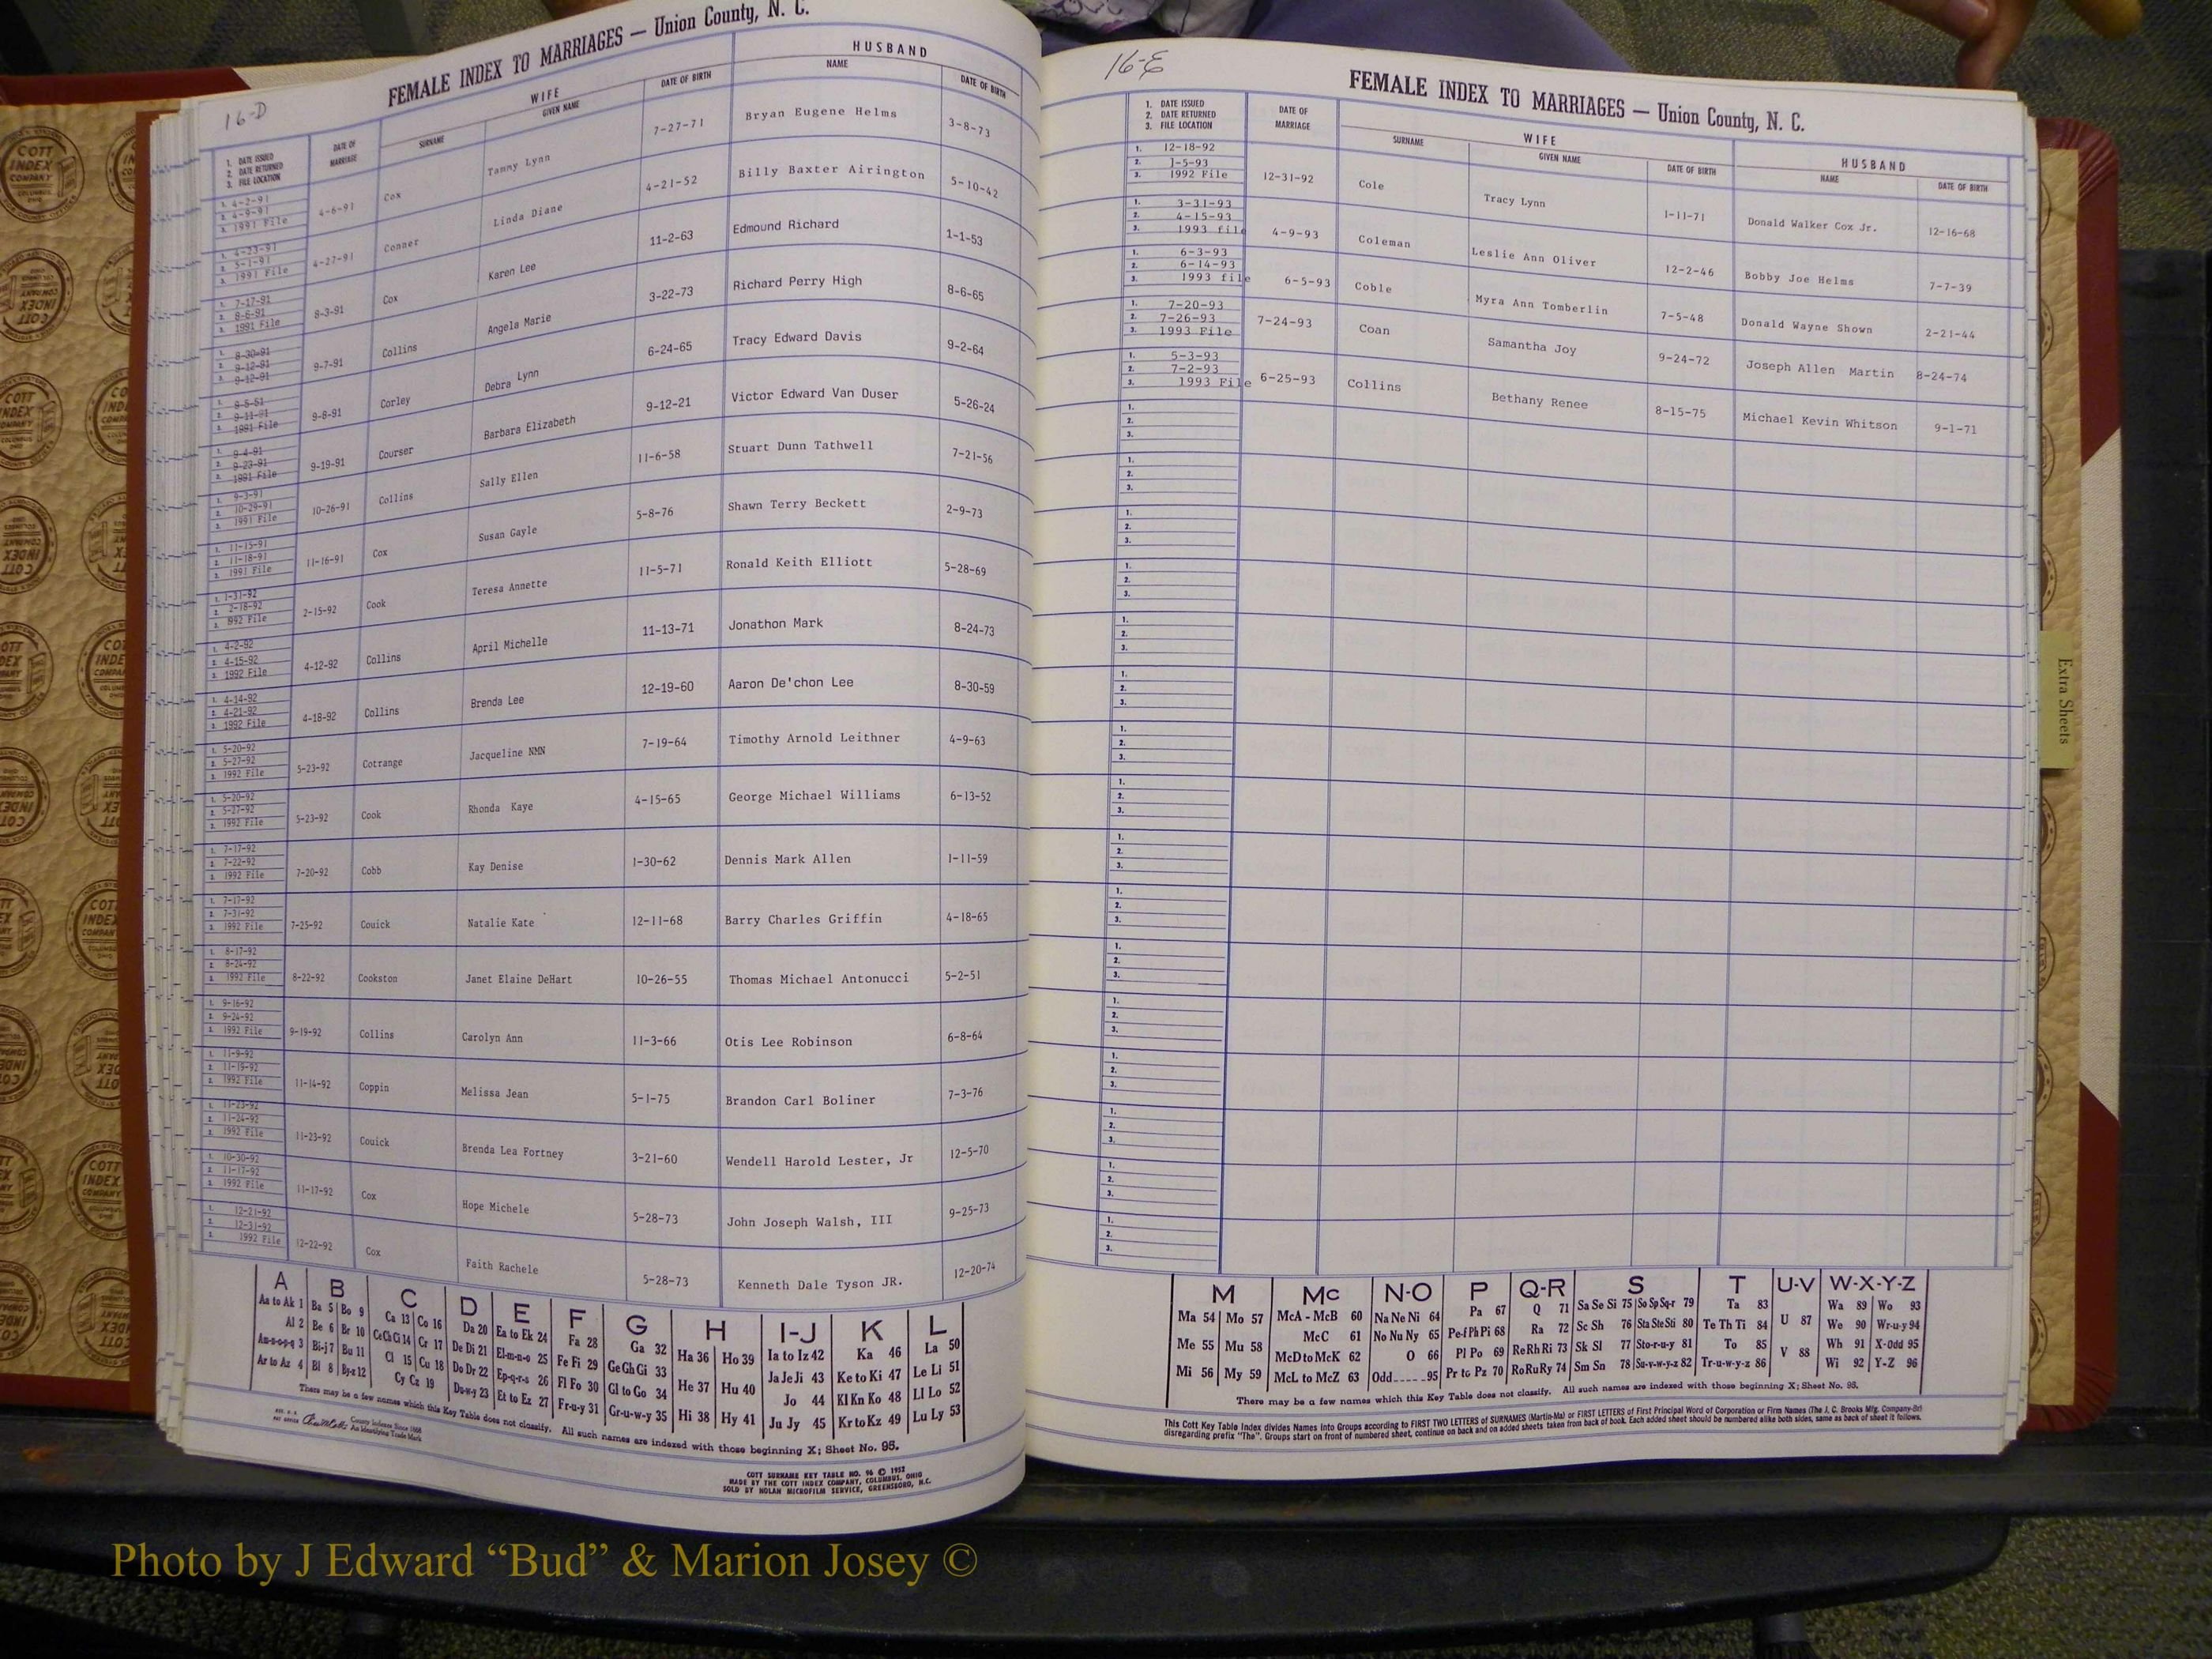 16-D
FEMALE INDEX TO MARRIAGES — Union County, N. C.
1. DATE ISSUED 2. DATE RETURNED 3. FILE LOCATION
DATE OF MARRIAGE
WIFE
SURNAME GIVEN NAME DATE OF BIRTH
HUSBAND
NAME DATE OF BIRTH
1. 4-2-91 2. 4-9-91 3. 1991 File 4-6-91 Cox Tammy Lynn 7-27-71 Bryan Eugene Helms 3-8-73
1. 4-23-91 2. 5-1-91 3. 1991 File 4-27-91 Conner Linda Diane 4-21-52 Billy Baxter Airington 5-10-42
1. 7-17-91 2. 8-6-91 3. 1991 File 8-3-91 Cox Karen Lee 11-2-63 Edmound Richard 1-1-53
1. 8-30-91 2. 9-12-91 3. 9-12-91 9-7-91 Collins Angela Marie 3-22-73 Richard Perry High 8-6-65
1. 9-5-91 2. 9-11-91 3. 1991 File 9-8-91 Corley Debra Lynn 6-24-65 Tracy Edward Davis 9-2-64
1. 9-4-91 2. 9-23-91 3. 1991 File 9-19-91 Courser Barbara Elizabeth 9-12-21 Victor Edward Van Duser 5-26-24
1. 9-3-91 2. 10-29-91 3. 1991 File 10-26-91 Collins Sally Ellen 11-6-58 Stuart Dunn Tathwell 7-21-56
1. 11-15-91 2. 11-18-91 3. 1991 File 11-16-91 Cox Susan Gayle 5-8-76 Shawn Terry Beckett 2-9-73
1. 1-31-92 2. 2-18-92 3. 992 File 2-15-92 Cook Teresa Annette 11-5-71 Ronald Keith Elliott 5-28-69
1. 4-2-92 2. 4-15-92 3. 1992 File 4-12-92 Collins April Michelle 11-13-71 Jonathon Mark 8-24-73
1. 4-14-92 2. 4-21-92 3. 1992 File 4-18-92 Collins Brenda Lee 12-19-60 Aaron De'chon Lee 8-30-59
1. 5-20-92 2. 5-27-92 3. 1992 File 5-23-92 Cotrange Jacqueline NMN 7-19-64 Timothy Arnold Leithner 4-9-63
1. 5-20-92 2. 5-27-92 3. 1992 File 5-23-92 Cook Rhonda Kaye 4-15-65 George Michael Williams 6-13-52
1. 7-17-92 2. 7-22-92 3. 1992 File 7-20-92 Cobb Kay Denise 1-30-62 Dennis Mark Allen 1-11-59
1. 7-17-92 2. 7-31-92 3. 1992 File 7-25-92 Couick Natalie Kate 12-11-68 Barry Charles Griffin 4-18-65
1. 8-17-92 2. 8-24-92 3. 1992 File 8-22-92 Cookston Janet Elaine DeHart 10-26-55 Thomas Michael Antonucci 5-2-51
1. 9-16-92 2. 9-24-92 3. 1992 File 9-19-92 Collins Carolyn Ann 11-3-66 Otis Lee Robinson 6-8-64
1. 11-9-92 2. 11-19-92 3. 1992 File 11-14-92 Coppin Melissa Jean 5-1-75 Brandon Carl Boliner 7-3-76
1. 11-23-92 2. 11-24-92 3. 1992 File 11-23-92 Couick Brenda Lea Fortney 3-21-60 Wendell Harold Lester, Jr 12-5-70
1. 10-30-92 2. 11-17-92 3. 1992 File 11-17-92 Cox Hope Michele 5-28-73 John Joseph Walsh, III 9-25-73
1. 12-21-92 2. 12-31-92 3. 1992 File 12-22-92 Cox Faith Rachele 5-28-73 Kenneth Dale Tyson JR. 12-20-74
A B C D E F G H I-J K L
Aa to Ak 1 Ba 5 Bo 9 Ca 13 Co 16 Da 20 Ea to Ek 24 Fa 28 Ga 32 Ha 36 Ho 39 Ia to Iz 42 Ka 46 La 50
Al 2 Be 6 Br 10 Ce Ch Ci 14 Cr 17 De Di 21 El-m-n-o 25 Fe Fi 29 Ge Gh Gi 33 He 37 Hu 40 Ja Je Ji 43 Ke to Ki 47 Le Li 51
Am-n-o-p-q 3 Bi-j 7 Bu 11 Cl 15 Cu 18 Do Dr 22 Ep-q-r-s 26 Fl Fo 30 Gl to Go 34 Hi 38 Hy 41 Jo 44 Kl Kn Ko 48 Ll Lo 52
Ar to Az 4 Bl 8 By-z 12 Cy Cz 19 Du-w-y 23 Et to Ez 27 Fr-u-y 31 Gr-u-w-y 35 Ju Jy 45 Kr to Kz 49 Lu Ly 53
There may be a few names which this Key Table does not classify. All such names are indexed with those beginning X; Sheet No. 95.
County Indexes Since 1888
An Identifying Trade Mark
COTT SURNAME KEY TABLE NO. 96 © 1952
MADE BY THE COTT INDEX COMPANY, COLUMBUS, OHIO
SOLD BY NOLAN MICROFILM SERVICE, GREENSBORO, N.C.
16-E
FEMALE INDEX TO MARRIAGES — Union County, N. C.
1. DATE ISSUED 2. DATE RETURNED 3. FILE LOCATION
DATE OF MARRIAGE
WIFE
SURNAME GIVEN NAME DATE OF BIRTH
HUSBAND
NAME DATE OF BIRTH
1. 12-18-92 2. 1-5-93 3. 1992 File 12-31-92 Cole Tracy Lynn 1-11-71 Donald Walker Cox Jr. 12-16-68
1. 3-31-93 2. 4-15-93 3. 1993 file 4-9-93 Coleman Leslie Ann Oliver 12-2-46 Bobby Joe Helms 7-7-39
1. 6-3-93 2. 6-14-93 3. 1993 file 6-5-93 Coble Myra Ann Tomberlin 7-5-48 Donald Wayne Shown 2-21-44
1. 7-20-93 2. 7-26-93 3. 1993 File 7-24-93 Coan Samantha Joy 9-24-72 Joseph Allen Martin 8-24-74
1. 5-3-93 2. 7-2-93 3. 1993 File 6-25-93 Collins Bethany Renee 8-15-75 Michael Kevin Whitson 9-1-71
Extra Sheets
M Mc N-O P Q-R S T U-V W-X-Y-Z
Ma 54 Mo 57 McA - McB 60 Na Ne Ni 64 Pa 67 Q 71 Sa Se Si 75 So Sp Sq-r 79 Ta 83 U 87 Wa 89 Wo 93
Me 55 Mu 58 McC 61 No Nu Ny 65 Pe-f Ph Pi 68 Ra 72 Sc Sh 76 Sta Ste Sti 80 Te Th Ti 84 V 88 We 90 Wr-u-y 94
McD to McK 62 O 66 Pl Po 69 Re Rh Ri 73 Sk Sl 77 Sto-r-u-y 81 To 85 Wh 91 X-Odd 95
Mi 56 My 59 McL to McZ 63 Odd 95 Pr to Pz 70 Ro Ru Ry 74 Sm Sn 78 Su-v-w-y-z 82 Tr-u-w-y-z 86 Wi 92 Y-Z 96
There may be a few names which this Key Table does not classify. All such names are indexed with those beginning X; Sheet No. 95.
This Cott Key Table Index divides Names into Groups according to FIRST TWO LETTERS of SURNAMES (Martin-Ma) or FIRST LETTERS of First Principal Word of Corporation or Firm Names (The J. C. Brooks Mfg. Company-Br)
disregarding prefix "The". Groups start on front of numbered sheet, continue on back and on added sheets taken from back of book. Each added sheet should be numbered alike both sides, same as back of sheet it follows.
Photo by J Edward “Bud” & Marion Josey ©